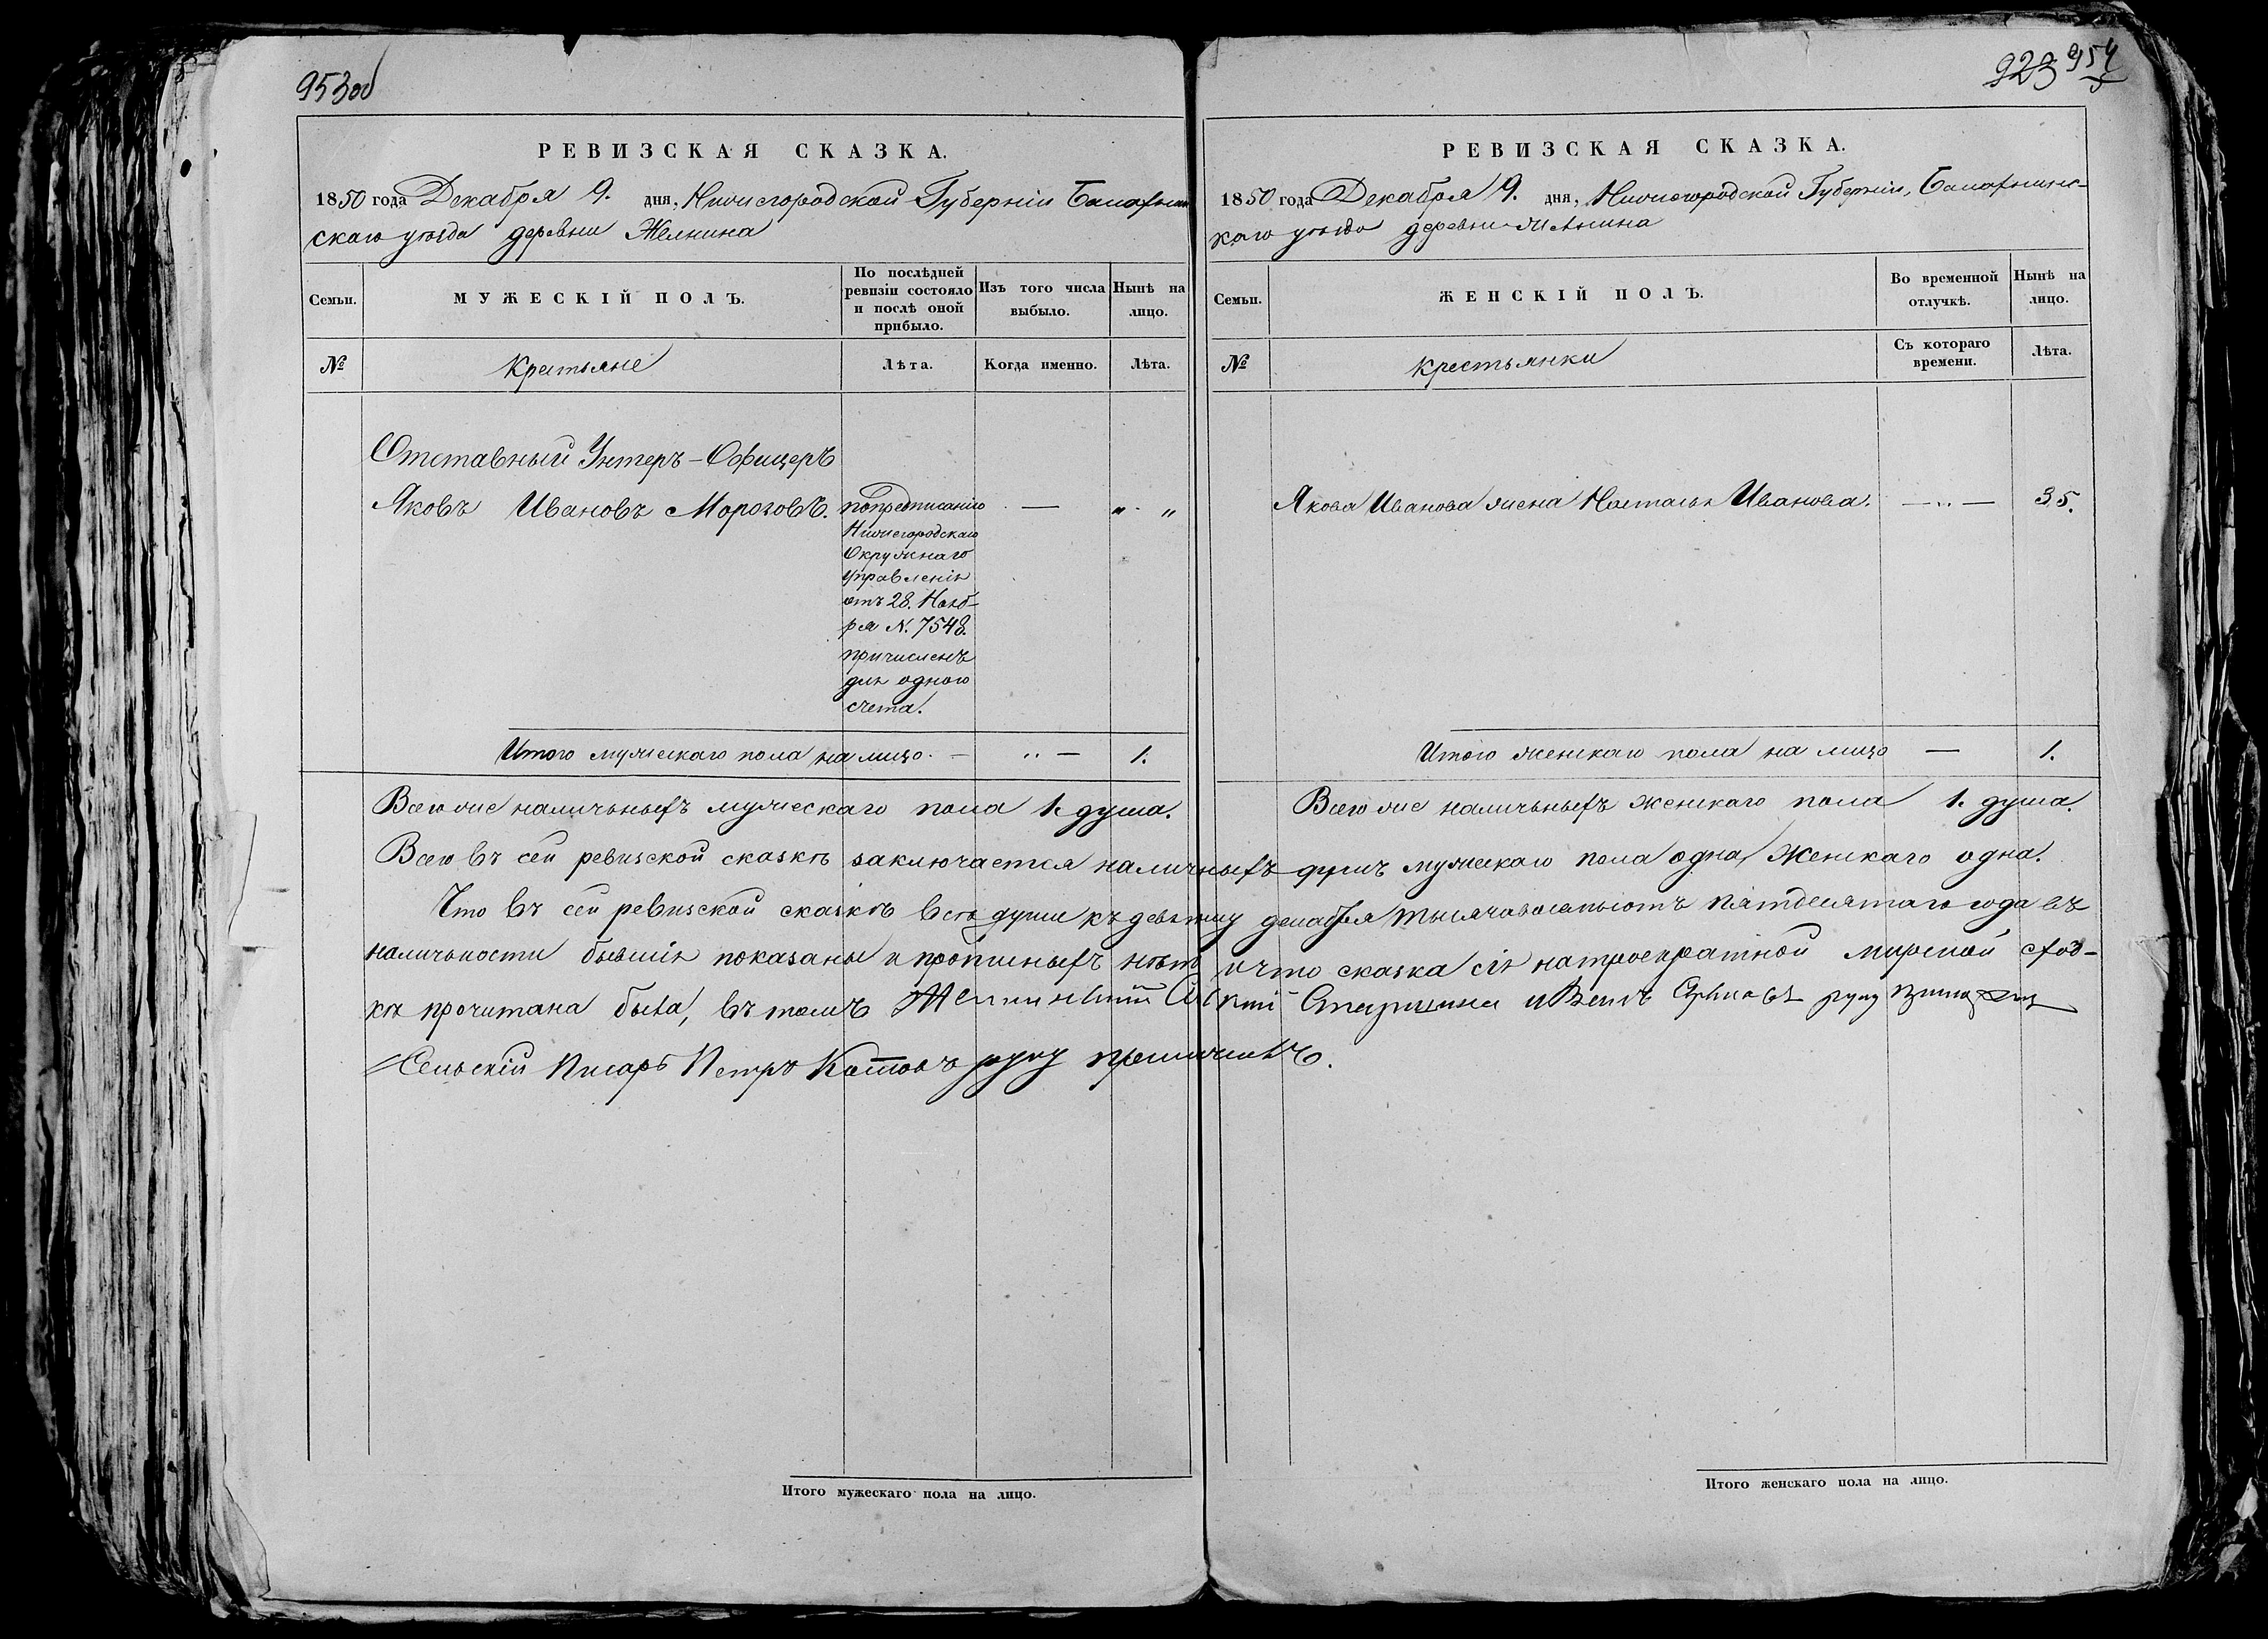 953об
РЕВИЗСКАЯ СКАЗКА.
1850 года Декабря 9. дня, Нижегородской Губерніи Балахнин
скаго уѣзда деревни Желнина
Семьи.
МУЖЕСКІЙ ПОЛЪ.
По послѣдней ревизіи состояло и послѣ оной прибыло.
Изъ того числа выбыло.
Нынѣ на лицо.
№
Крестьяне
Лѣта.
Когда именно.
Лѣта.
Отставный Унтеръ-Офицеръ
Яковъ Ивановъ Морозовъ. — „ „
по предписанію
Нижегородскаго
Окружнаго
Управленія
отъ 28. Нояб-
ря N. 7548.
причисленъ
для одного
счета.
Итого мужескаго пола на лицо. — 1.
Всего же наличьныхъ мужескаго пола 1. душа.
923 954
РЕВИЗСКАЯ СКАЗКА.
1850 года Декабря 9. дня, Нижегородской Губерніи, Балахнинс-
каго уѣзда деревни Желнина
Семьи.
ЖЕНСКІЙ ПОЛЪ.
Во временной отлучкѣ.
Нынѣ на лицо.
№
Крестьянки
Съ котораго времени.
Лѣта.
Якова Иванова жена Настасья Иванова. — „ — 35.
Итого женскаго пола на лицо — 1.
Всего же наличьныхъ женскаго пола 1. душа.
Всего въ сей ревизской сказкѣ заключается наличныхъ душъ мужескаго пола одна, Женскаго одна.
Что въ сей ревизской сказкѣ всѣ души къ девятому декабря тысячавосемьсотъ пятдесятаго года въ
наличьности бывшія показаны и прописныхъ нѣтъ и что сказка сія на троекратной мирской сход-
кѣ прочитана была, въ томъ Желнинскій Старшина руку
Сельскій Писарь Петръ Котовъ руку приложилъ.
Итого мужескаго пола на лицо.
Итого женскаго пола на лицо.